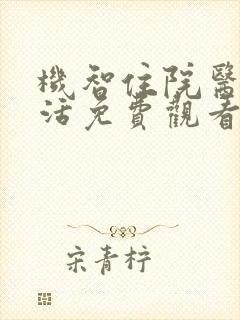 機智住院醫
活免費觀看
宋青柠